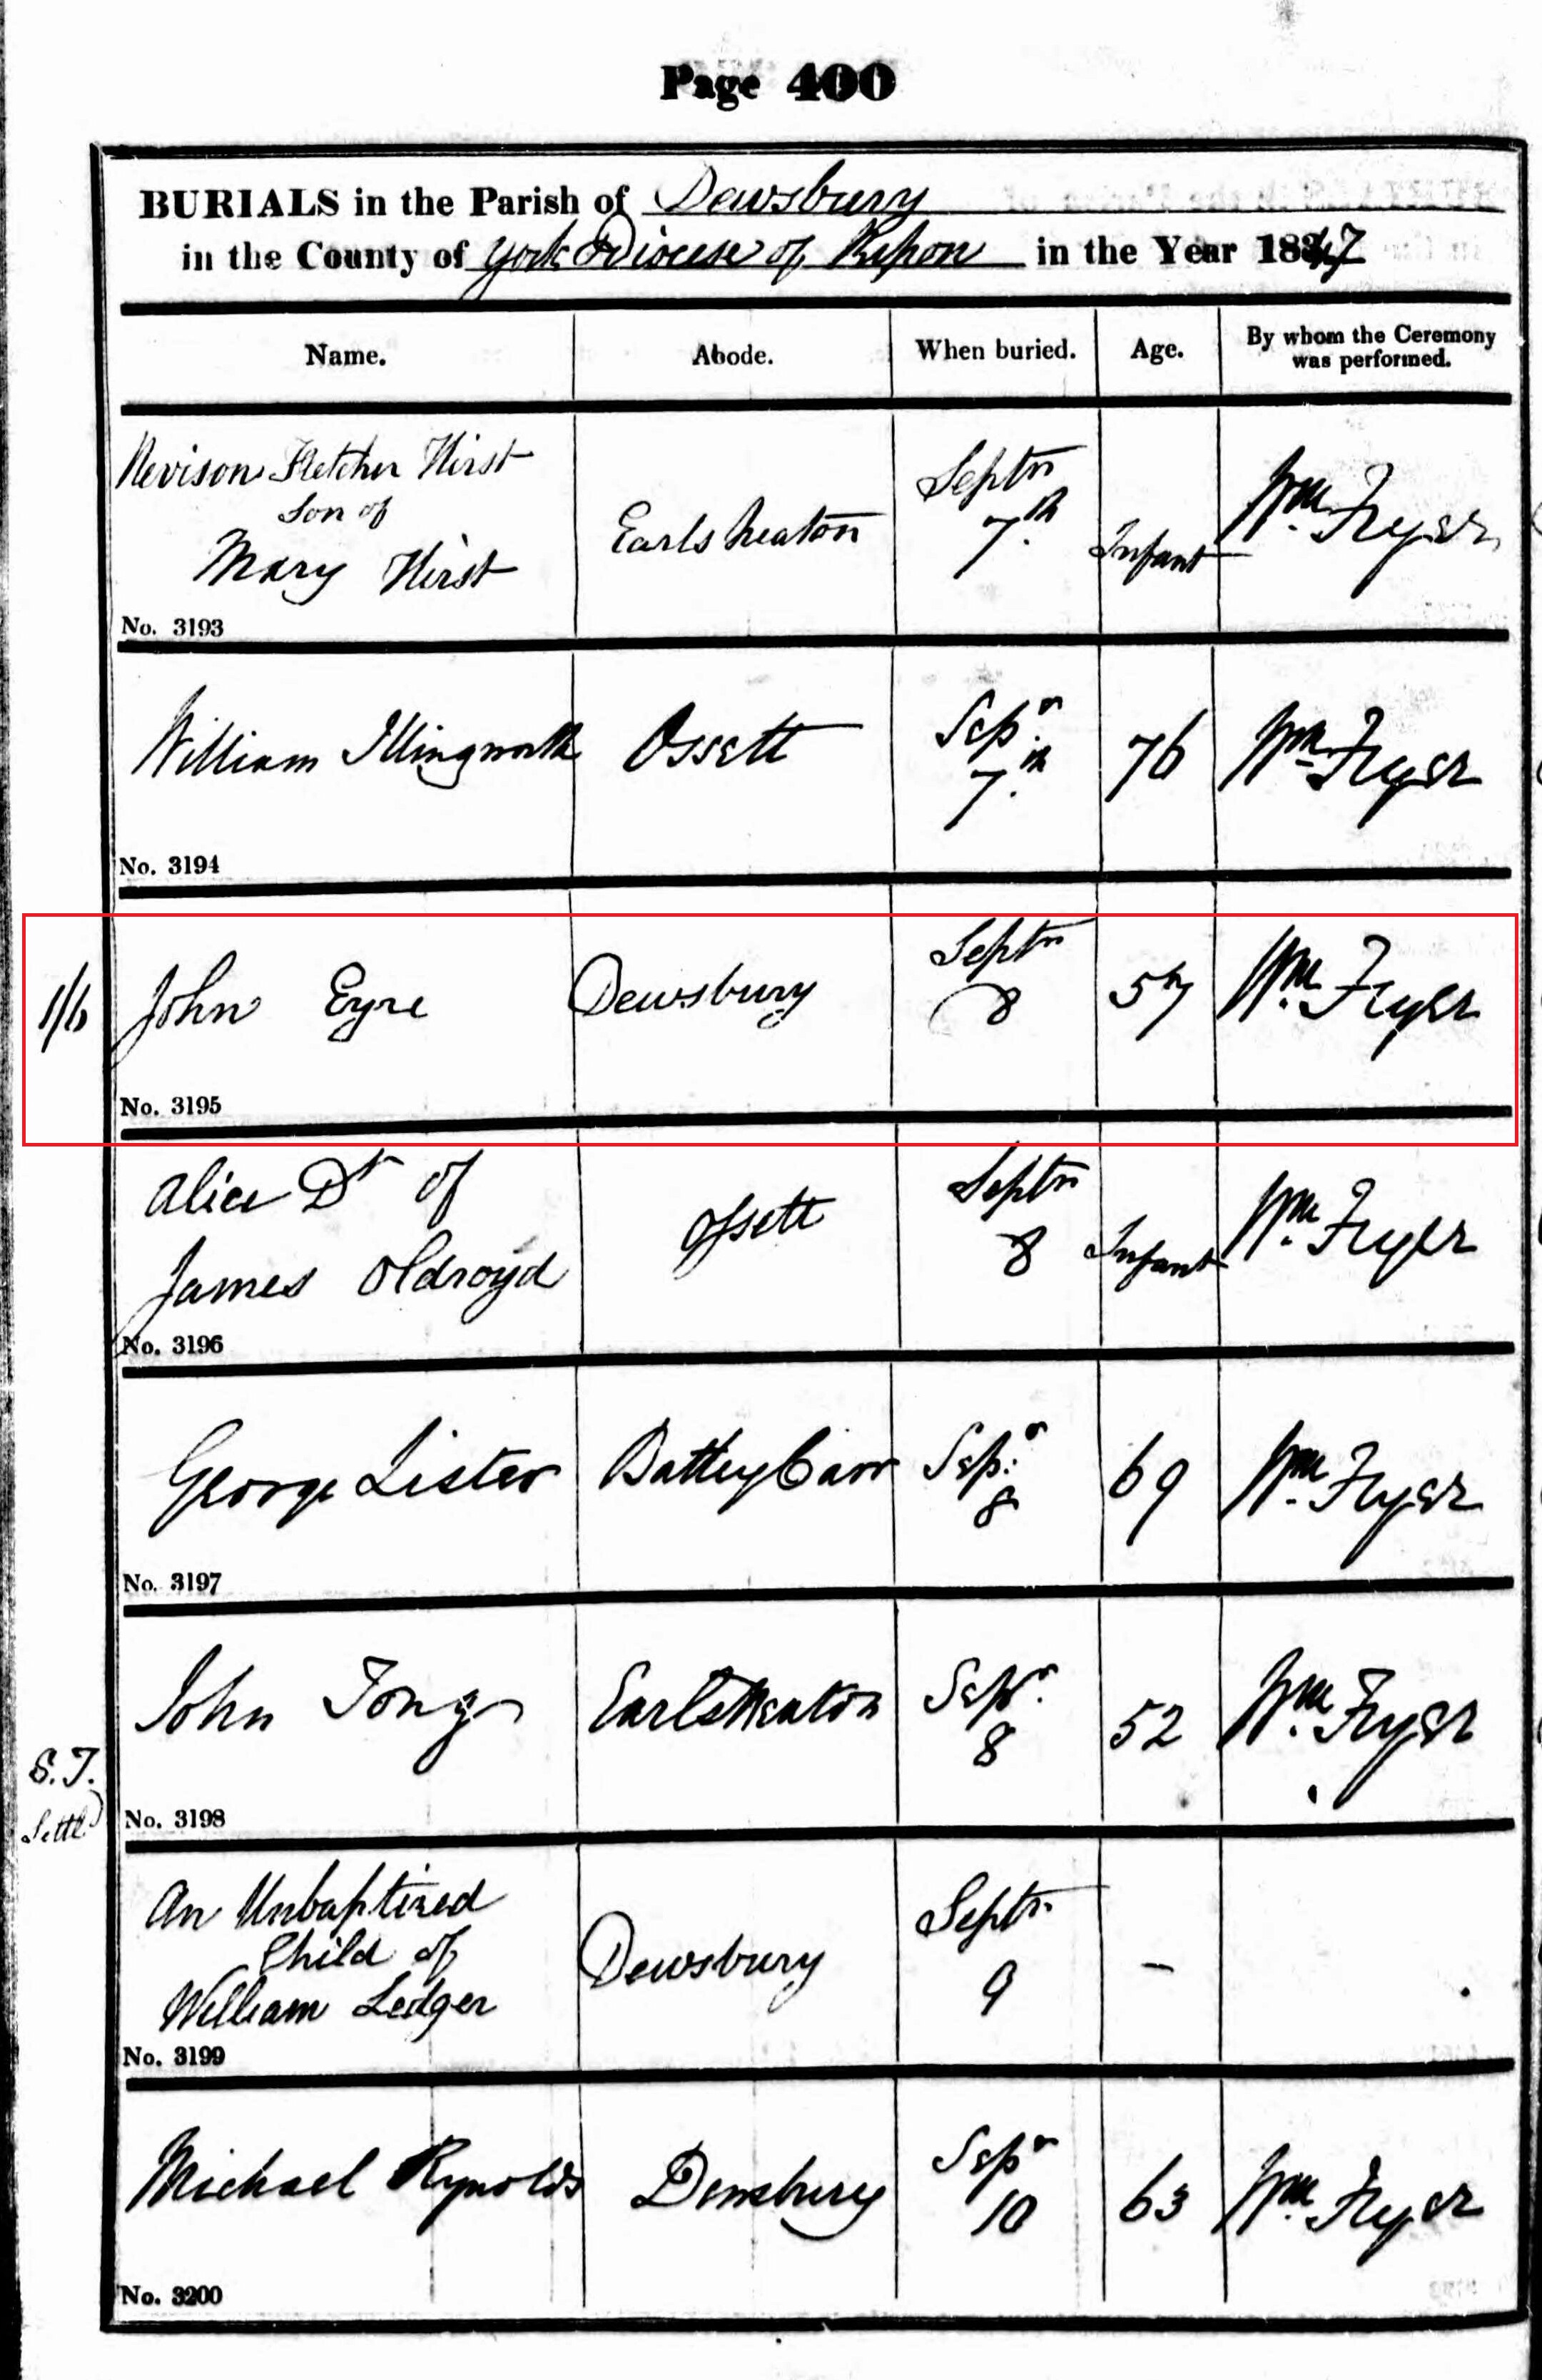 Page 400
BURIALS in the Parish of Dewsbury
in the County of York Diocese of Ripon in the Year 1847
Name. Abode. When buried. Age. By whom the Ceremony
was performed.
Nevison Fletcher Hirst
Son of
Mary Hirst
Earlsheaton
Septr
7th
Infant
Wm Fryer
No. 3193
William Illingworth
Ossett
Sepr
7th
76
Wm Fryer
No. 3194
1/6
John Eyre
Dewsbury
Septr
8
57
Wm Fryer
No. 3195
Alice Dr of
James Oldroyd
Ossett
Septr
8
Infant
Wm Fryer
No. 3196
George Lister
Batley Carr
Sepr
8
69
Wm Fryer
No. 3197
John Tong
Earlsheaton
Sepr
8
52
Wm Fryer
S.T.
Settld
No. 3198
An Unbaptized
Child of
William Ledger
Dewsbury
Septr
9
-
No. 3199
Michael Rynolds
Dewsbury
Sepr
10
63
Wm Fryer
No. 3200